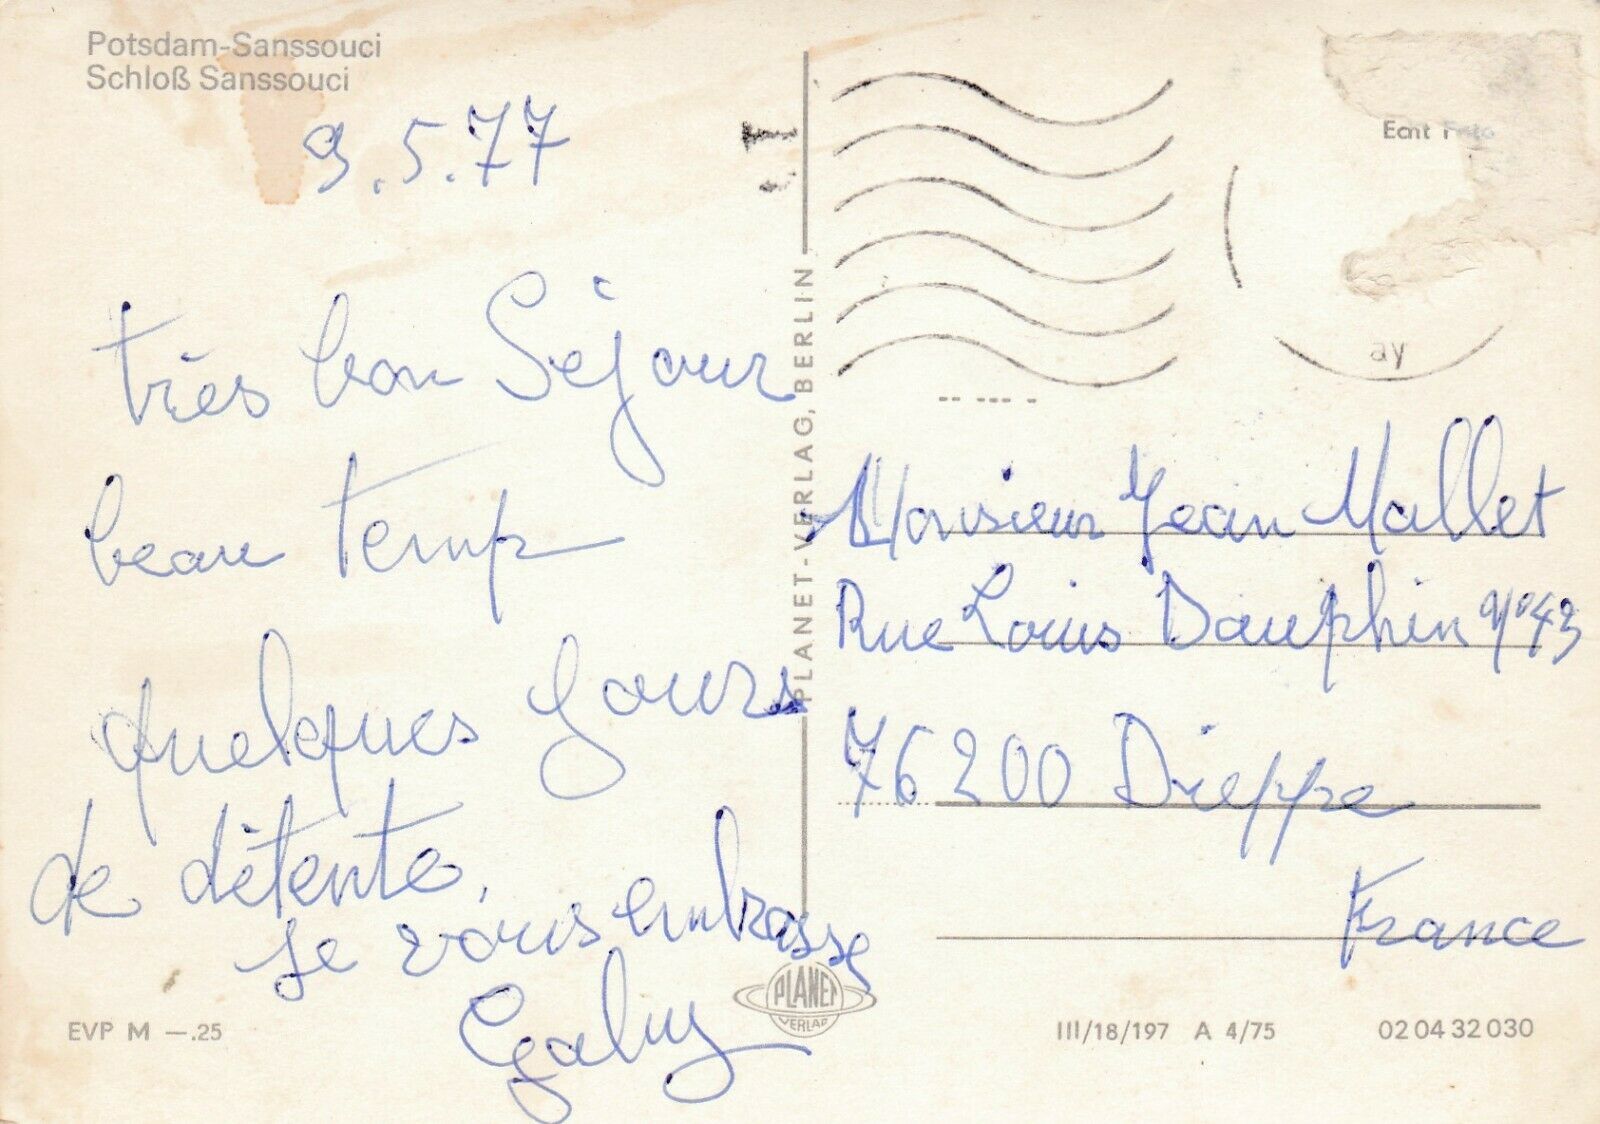 Potsdam-Sanssouci
Schloß Sanssouci
9.5.77
très bon Séjour
beau temps
quelques jours
de détente,
je vous embrasse
Gaby
PLANET-VERLAG, BERLIN
PLANET
VERLAG
EVP M —.25
Echt Foto
ay
Monsieur Jean Mallet
Rue Louis Dauphin n°43
76200 Dieppe
France
III/18/197 A 4/75
02 04 32 030